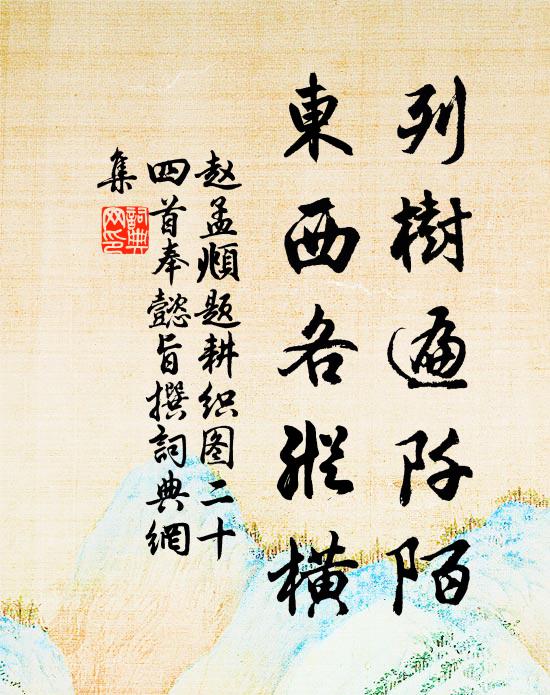 列樹遍阡陌
東西各縱橫
赵孟頫题耕织图二十
四首奉懿旨撰詞典網
集
詞典
网印